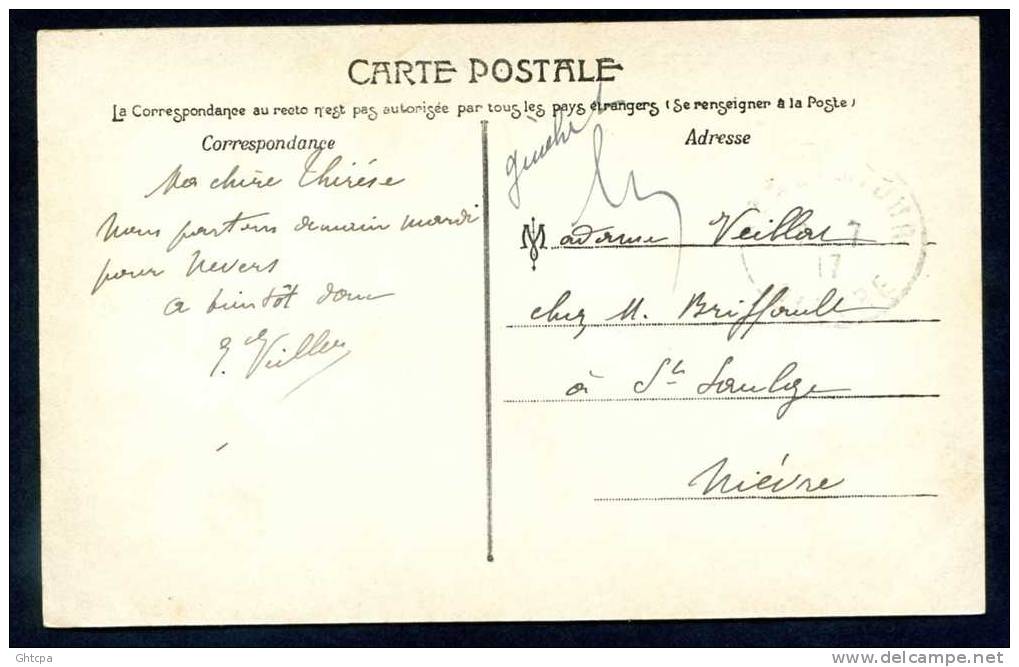 CARTE POSTALE
La Correspondance au recto n'est pas autorisée par tous les pays étrangers (Se renseigner à la Poste)
Correspondance
Ma chère Thérèse
Nous partons demain mardi
pour Nevers
a bientôt donc
Adresse
Madame Veillat
chez M. Briffault
à St Saulge
Nièvre
7
17
Ghtcpa
delcampe.net